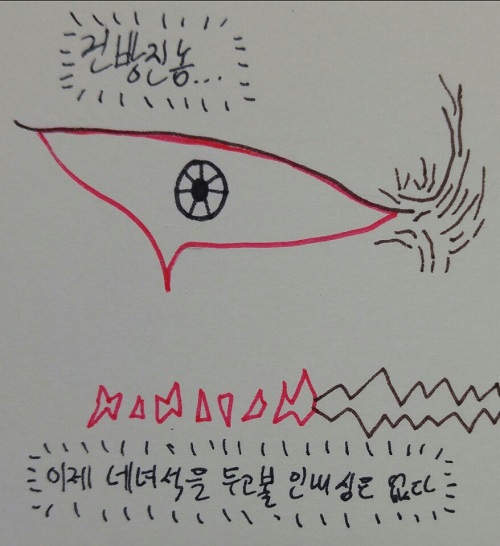 건방진놈...
이제 네녀석을 두고볼 인내심도 없다